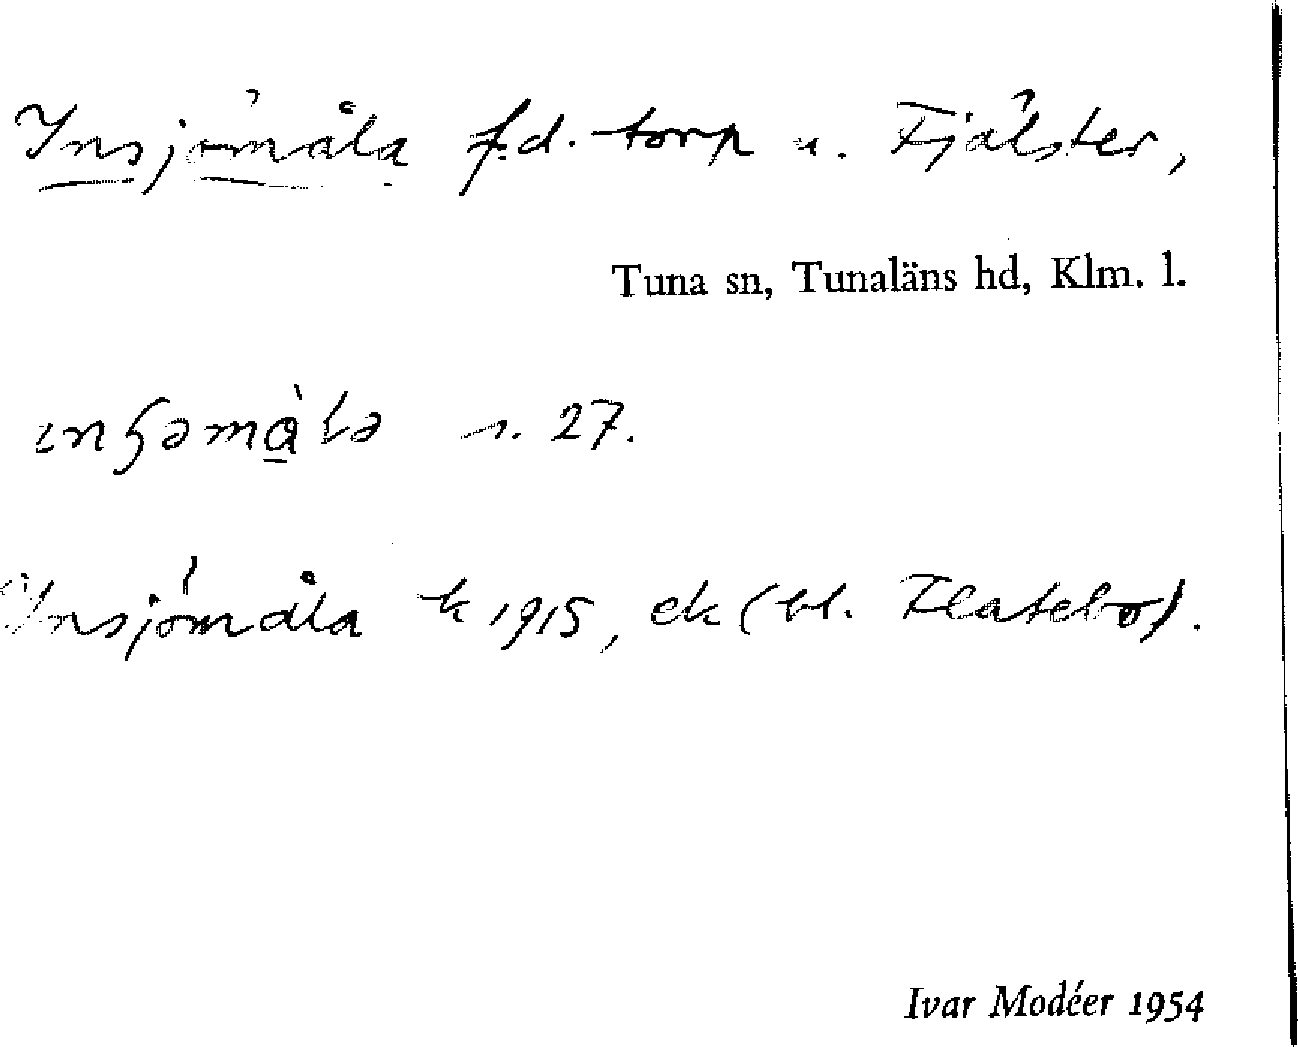 Insjömåla f.d. torp u. Fjälster,
Tuna sn, Tunaläns hd, Klm. l.
s. 27.
Insjömåla k 1915, ek (bl. Flatebo).
Ivar Modéer 1954